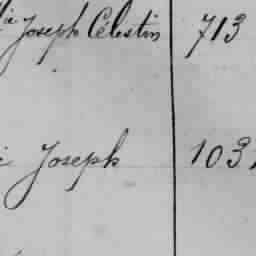 Joseph Célestin 713
Joseph 103